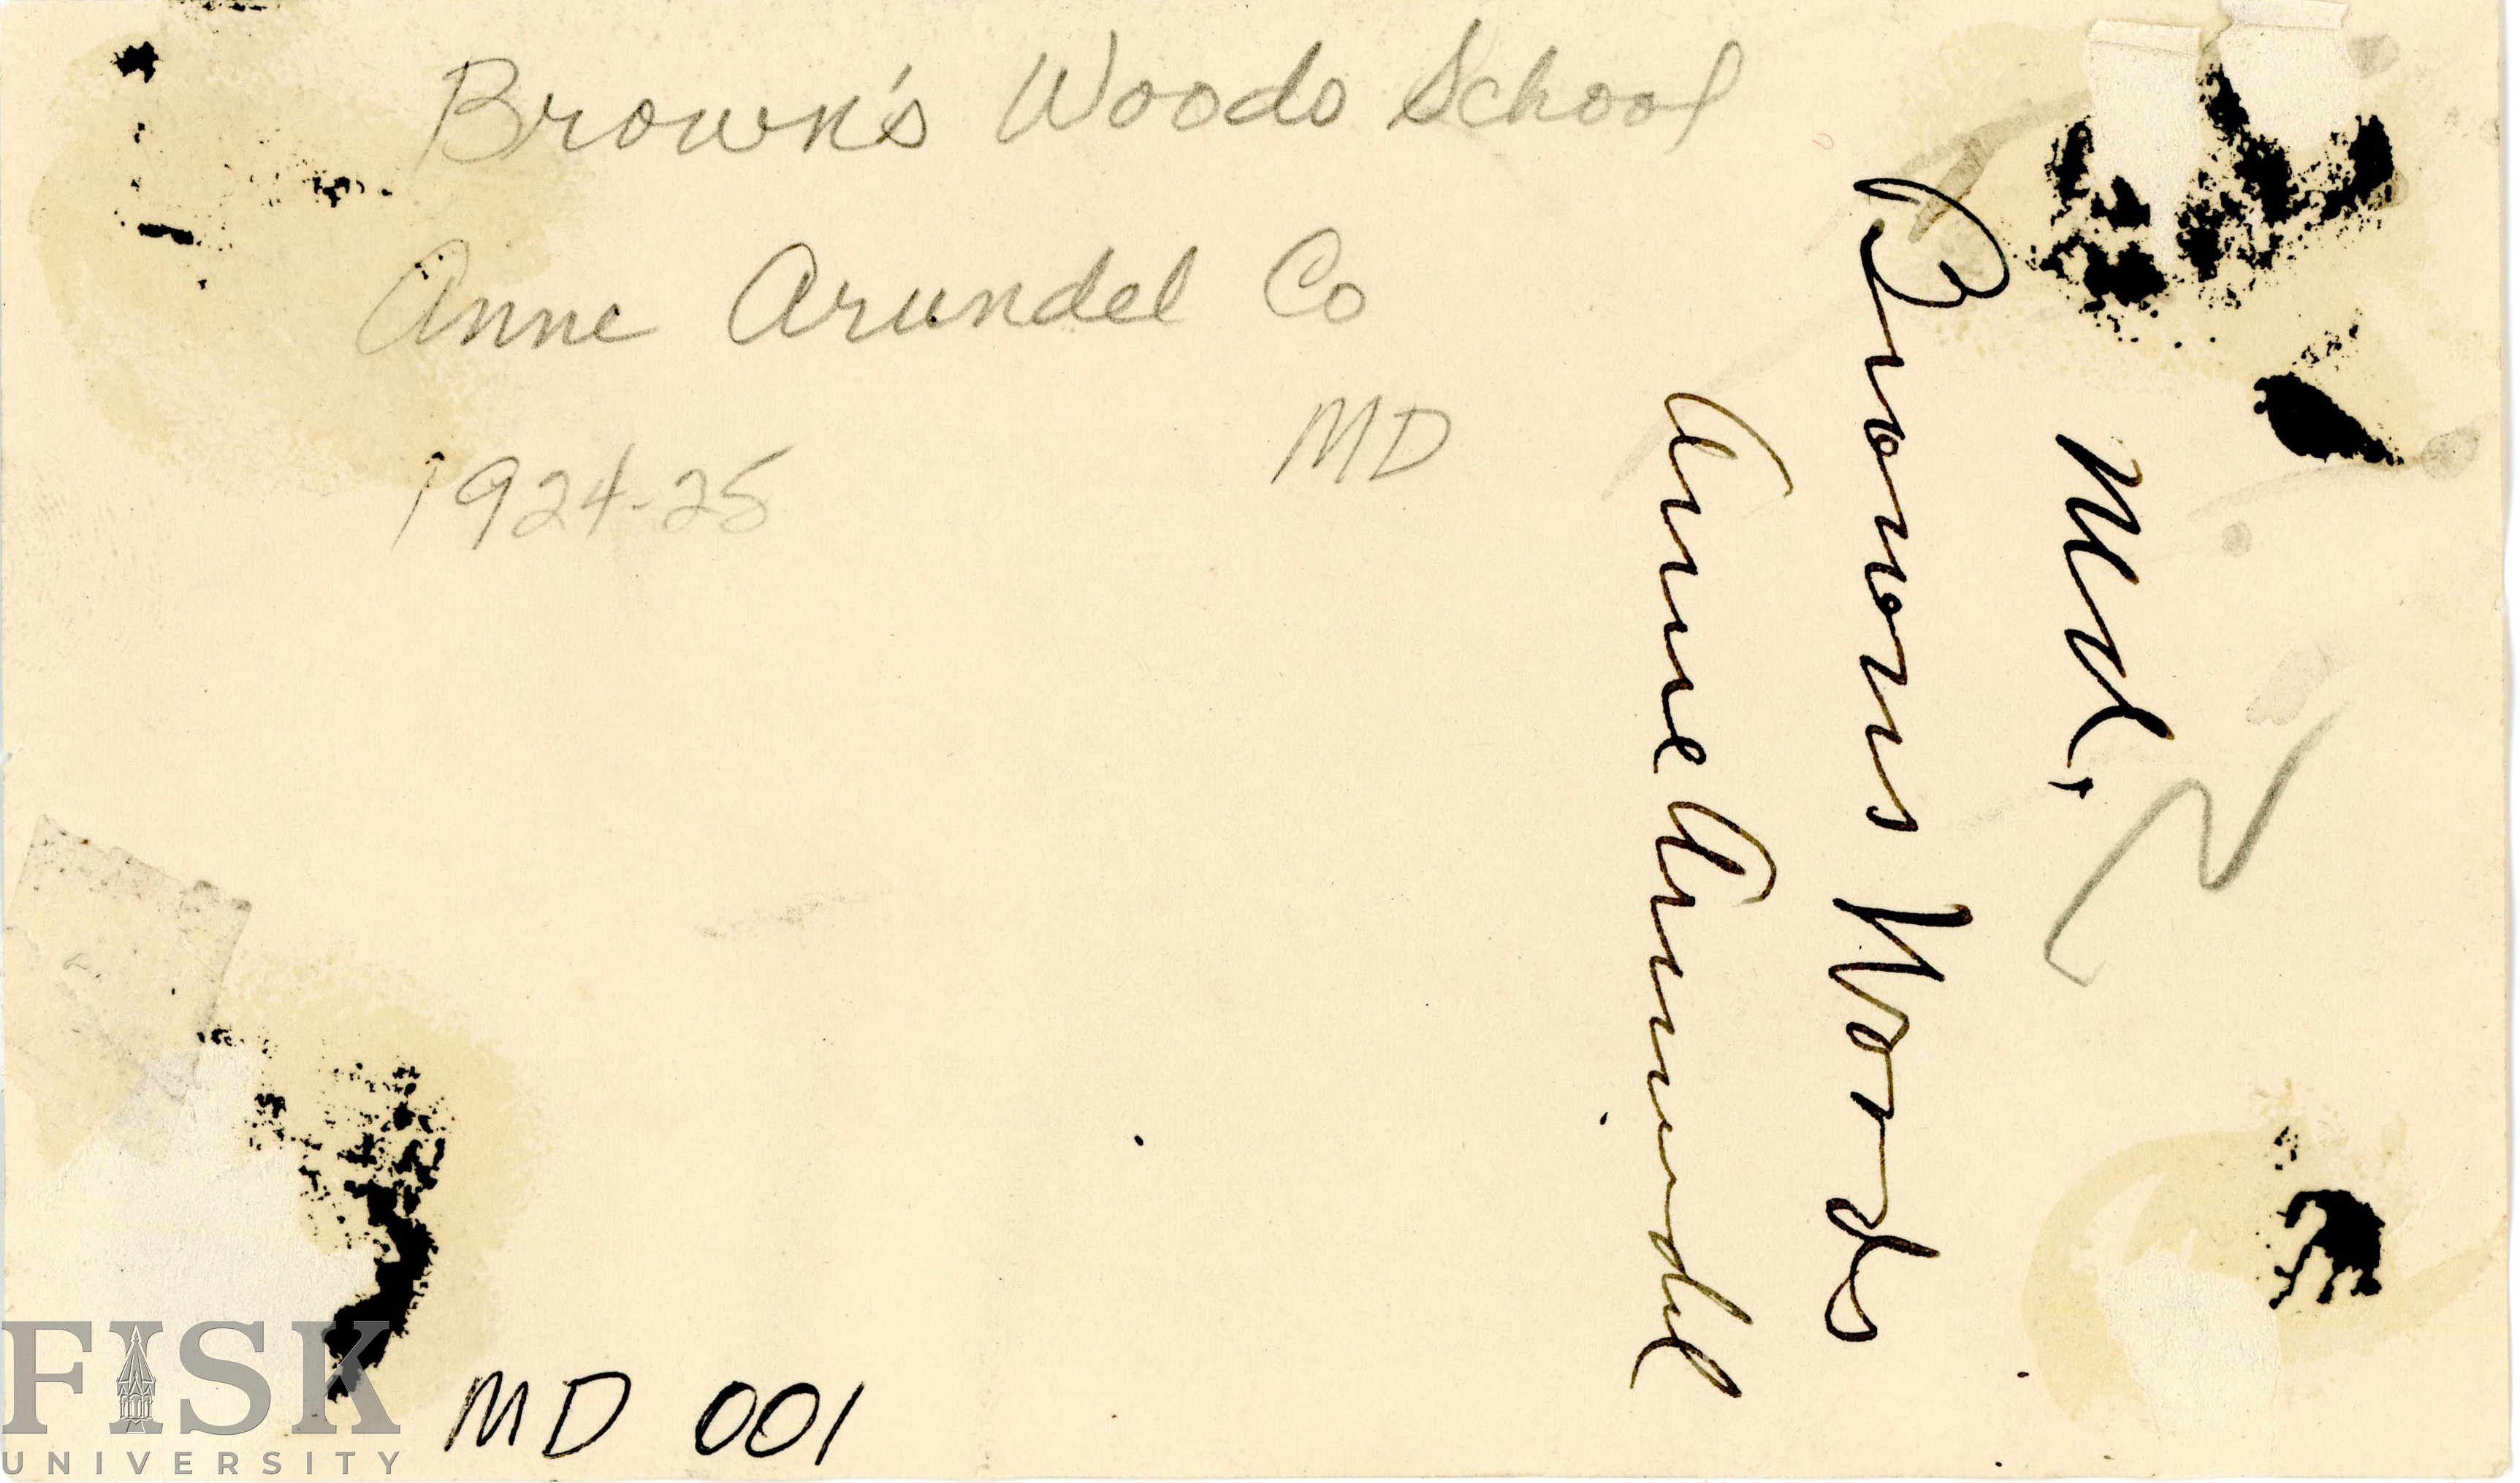 Brown's Woods School
Anne Arundel Co
MD
1924-25
Md.
Browns Woods
Anne Arundel
MD 001
FISK
UNIVERSITY